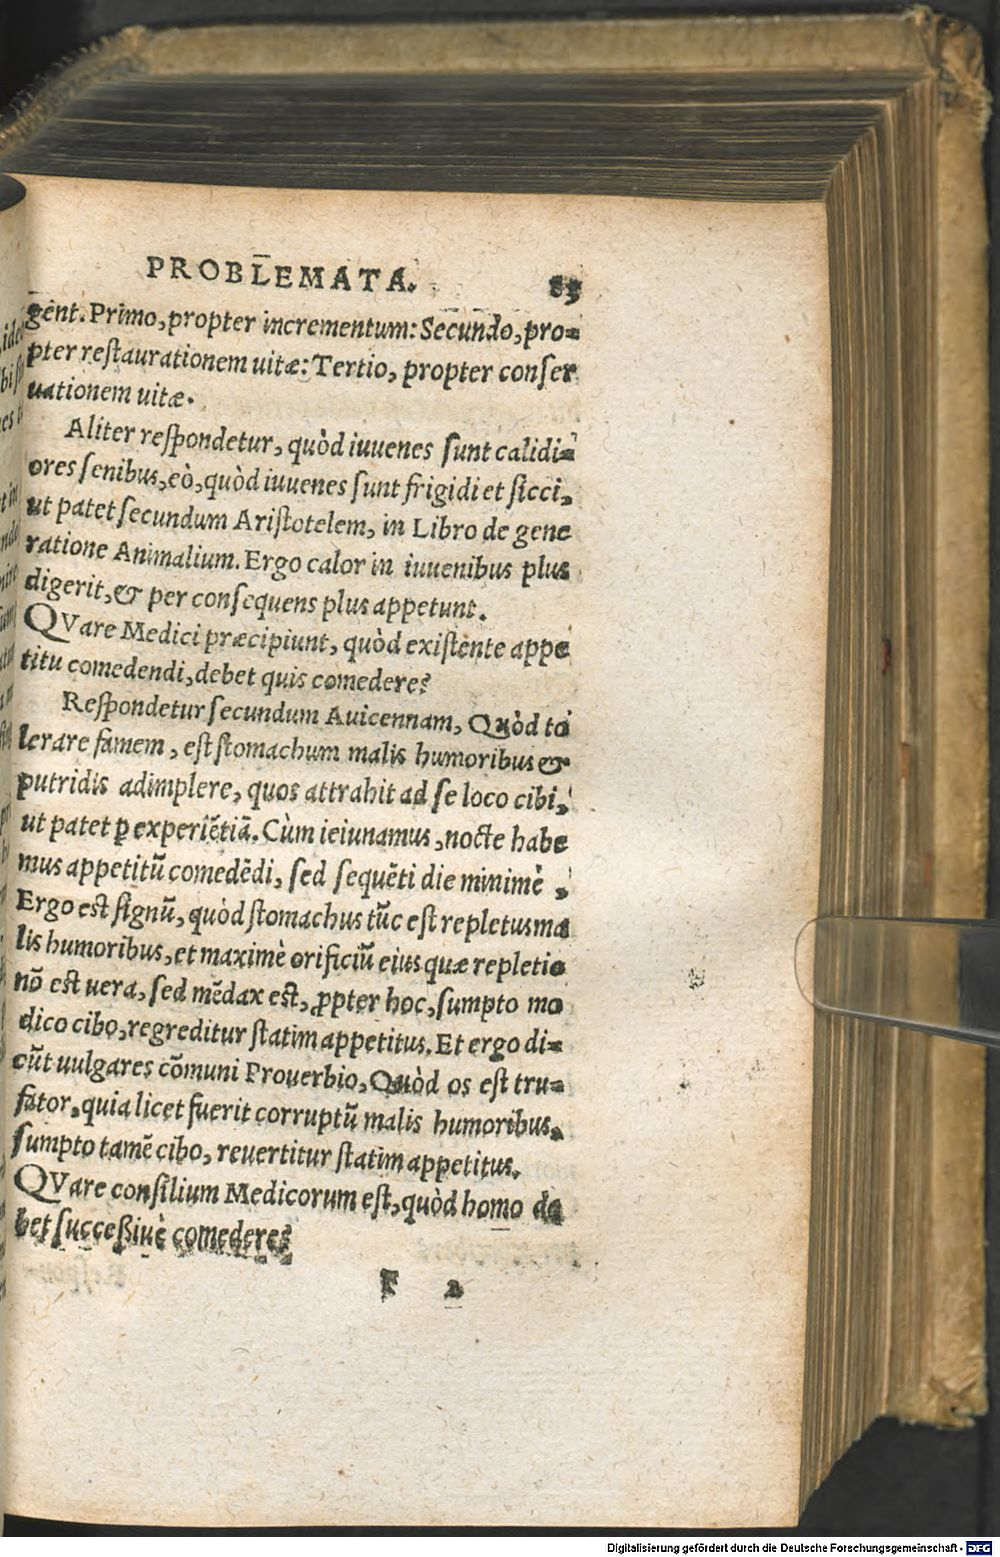 PROBLEMATA. 83
gent. Primo, propter incrementum: Secundo, pro-
pter restaurationem uitæ: Tertio, propter conser
uationem uitæ.
Aliter respondetur, quòd iuuenes sunt calidi-
ores senibus, eò, quòd iuuenes sunt frigidi et sicci,
ut patet secundum Aristotelem, in Libro de gene
ratione Animalium. Ergo calor in iuuenibus plus
digerit, & per consequens plus appetunt.
QVare Medici præcipiunt, quòd existente appe
titu comedendi, debet quis comedere?
Respondetur secundum Auicennam, Quòd to
lerare famem, est stomachum malis humoribus &
putridis adimplere, quos attrahit ad se loco cibi,
ut patet ꝑ experiẽtiã. Cùm ieiunamus, nocte habe
mus appetitũ comedẽdi, sed sequẽti die minimè,
Ergo est signũ, quòd stomachus tũc est repletus ma
lis humoribus, et maximè orificiũ eius quæ repletio
nõ est uera, sed mẽdax est, ꝓpter hoc, sumpto mo
dico cibo, regreditur statim appetitus. Et ergo di-
cũt uulgares cõmuni Prouerbio, Quòd os est tru-
fator, quia licet fuerit corruptũ malis humoribus,
sumpto tamẽ cibo, reuertitur statim appetitus.
QVare consilium Medicorum est, quòd homo de
bet succeßiuè comedere?
F 2
Digitalisierung gefördert durch die Deutsche Forschungsgemeinschaft - DFG